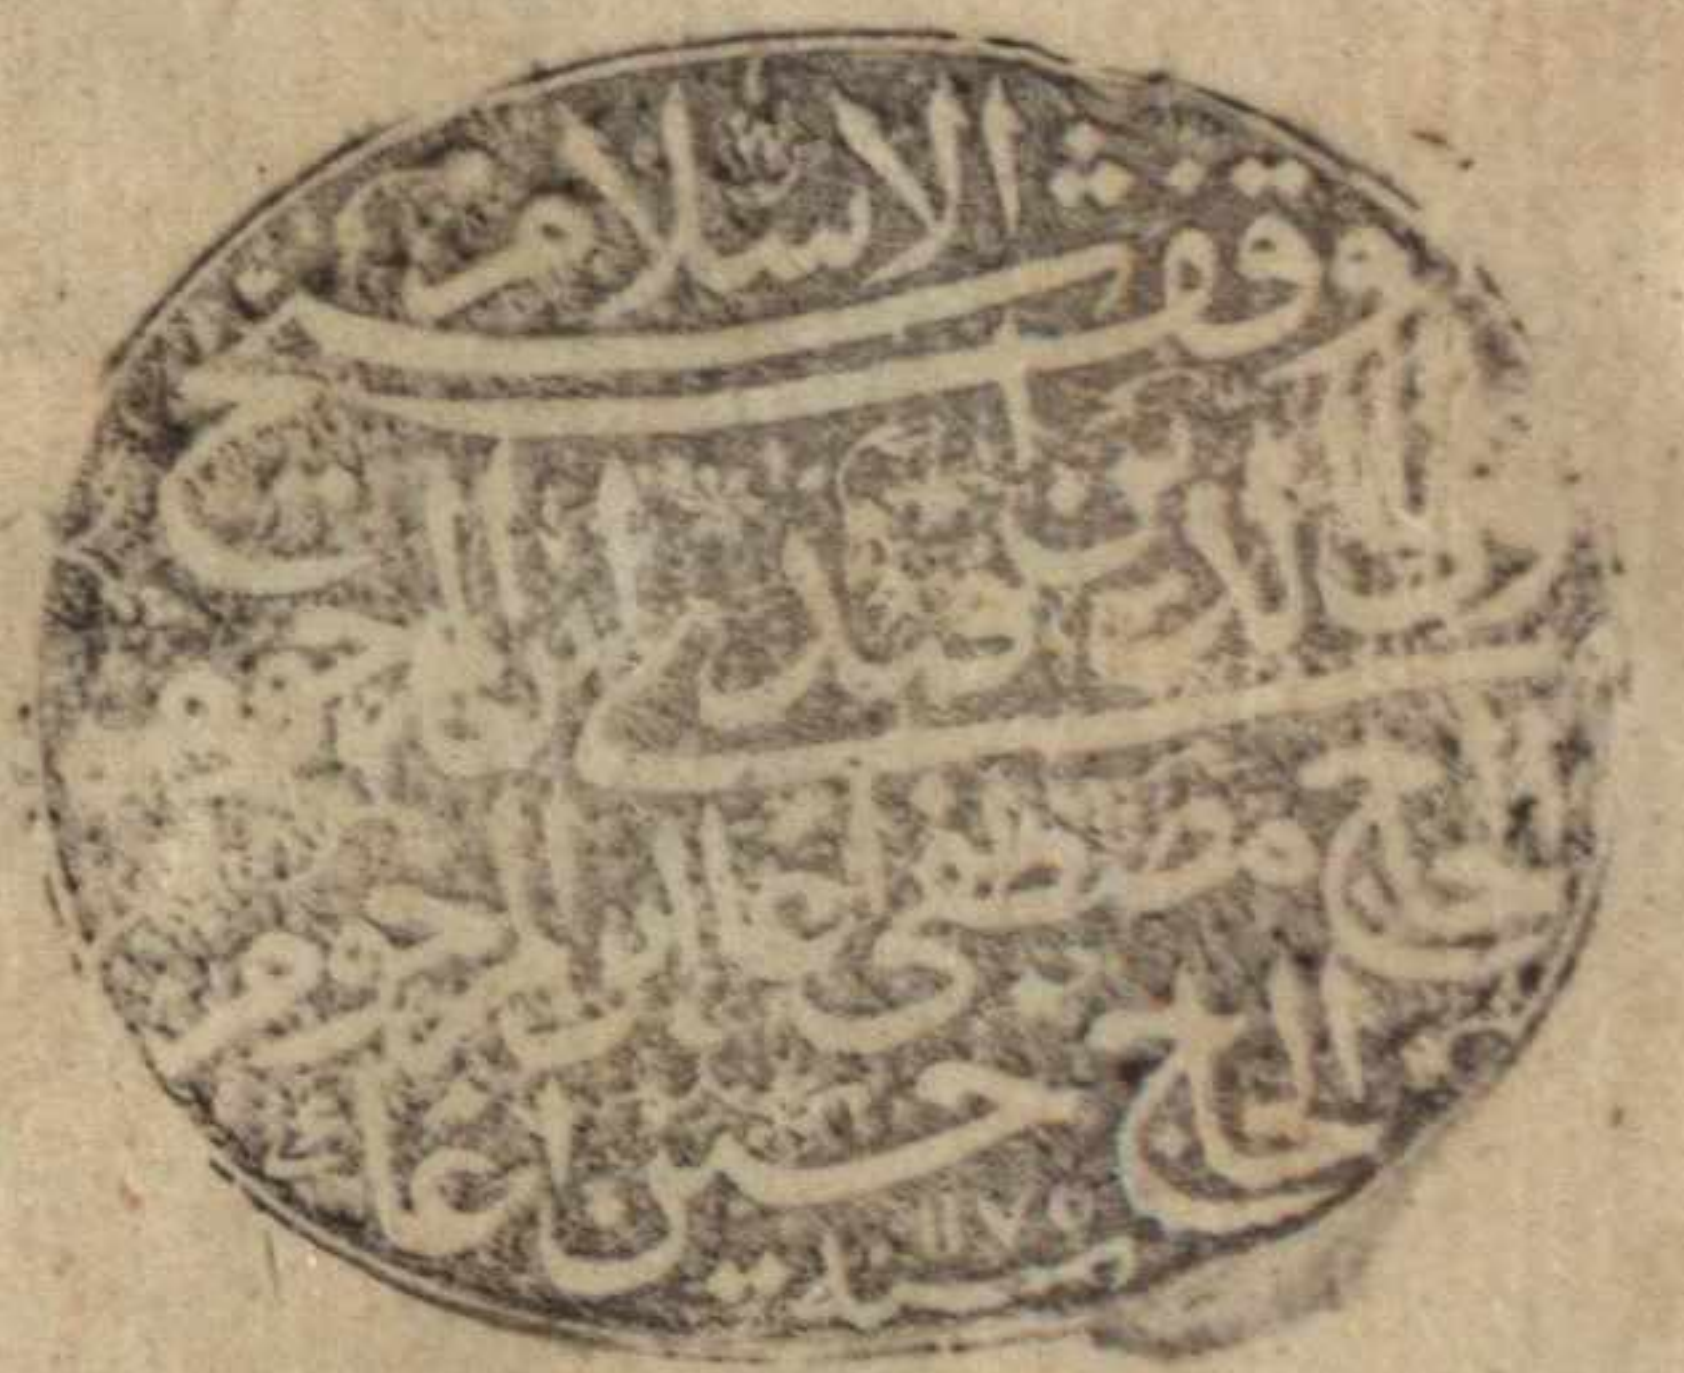 وقف شيخ الاسلام
ولي الدين افندى ابن المرحوم
الحاج مصطفى اغا ابن المرحوم
الحاج حسين اغا
١١٧٥